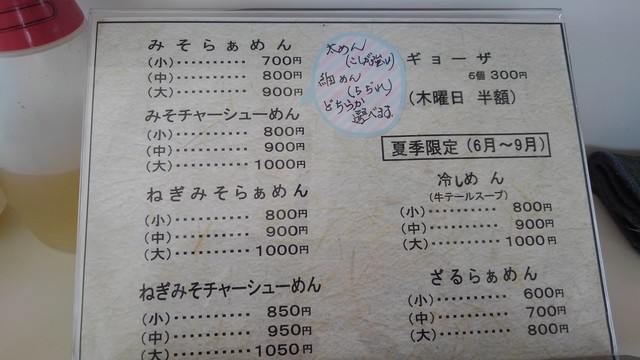 みそらぁめん
(小)・・・・・・・・・・ 700円
(中)・・・・・・・・・・ 800円
(大)・・・・・・・・・・ 900円
みそチャーシューめん
(小)・・・・・・・・・・ 800円
(中)・・・・・・・・・・ 900円
(大)・・・・・・・・・・ 1000円
ねぎみそらぁめん
(小)・・・・・・・・・・ 800円
(中)・・・・・・・・・・ 900円
(大)・・・・・・・・・・ 1000円
ねぎみそチャーシューめん
(小)・・・・・・・・・・ 850円
(中)・・・・・・・・・・ 950円
(大)・・・・・・・・・・ 1050円
太めん
(こしが強い)
細めん
(ちぢれ)
どちらか
選べます。
ギョーザ
6個 300円
(木曜日 半額)
夏季限定(6月～9月)
冷しめん
(牛テールスープ)
(小)・・・・・・・・・・ 800円
(中)・・・・・・・・・・ 900円
(大)・・・・・・・・・・ 1000円
ざるらぁめん
(小)・・・・・・・・・・ 600円
(中)・・・・・・・・・・ 700円
(大)・・・・・・・・・・ 800円